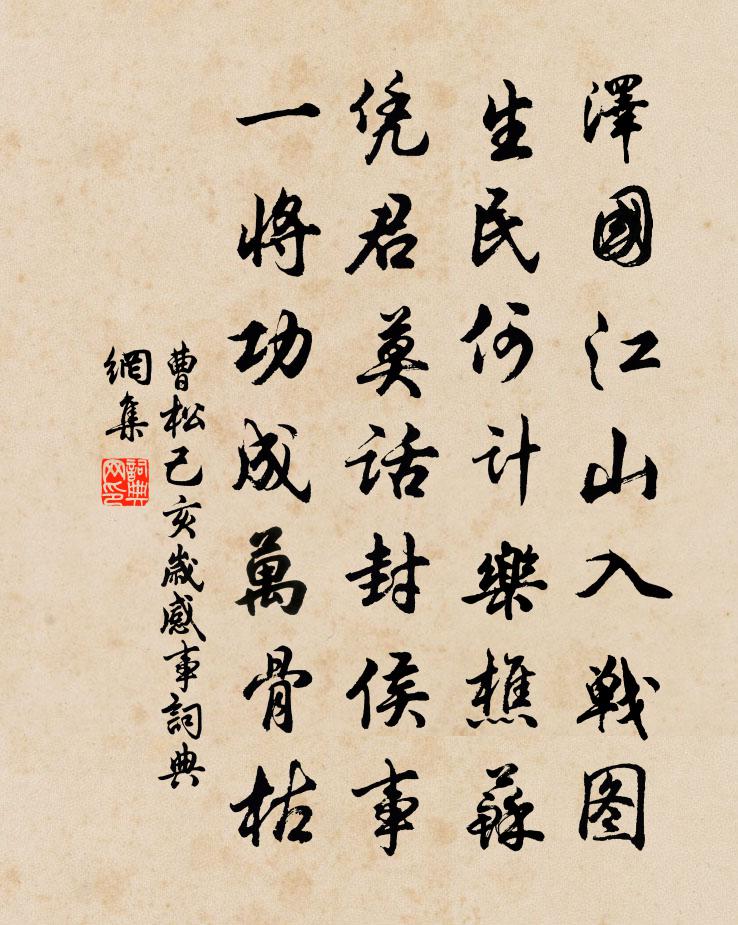 澤國江山入戦图
生民何計樂樵蘇
凭君莫话封侯事
一将功成萬骨枯
曹松己亥歲感事詞典
網集
詞典
网印